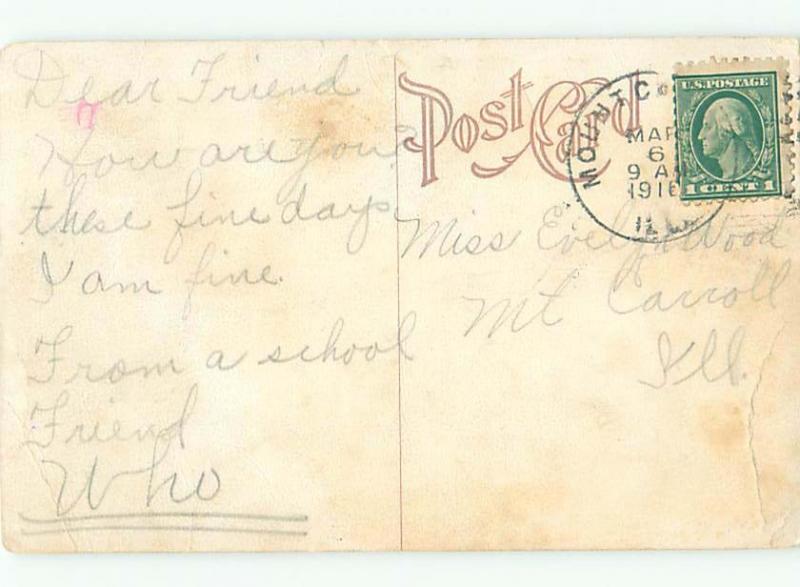 Dear Friend
How are you?
these fine days
I am fine.
From a school
Friend
Who
Post Card
MOUNT C
MAR
6
9 AM
1916
ILL.
U.S. POSTAGE
1 CENT 1
Miss Evelyn Wood
Mt Carroll
Ill.